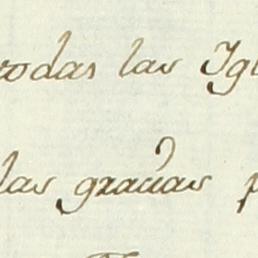 todas las Igl
las gracias p